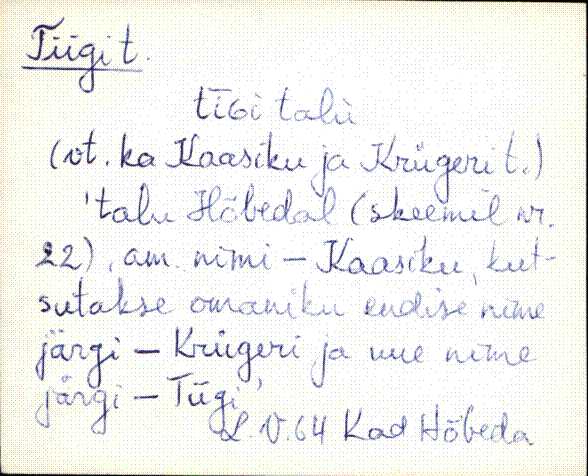 Tiigi t.
tīGi talu
(vt. ka Kaasiku ja Krügeri t.)
'talu Hõbedal (skeemil nr.
22), am. nimi – Kaasiku, kut-
sutakse omaniku endise nime
järgi – Krügeri ja uue nime
järgi – Tiigi'
L. V. 64 Kad Hõbeda